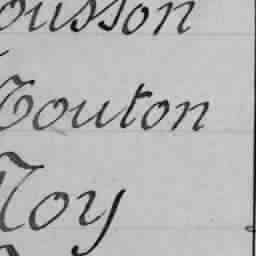 ousson
Touton
Noy